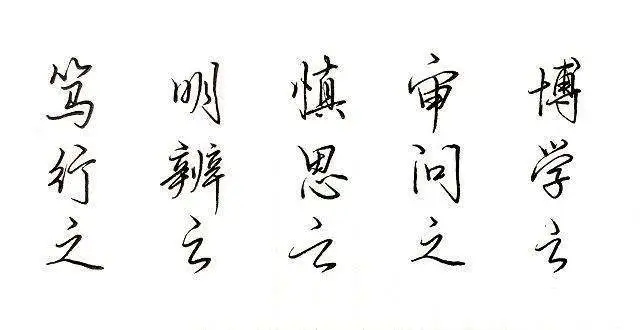 博学之
审问之
慎思之
明辨之
笃行之